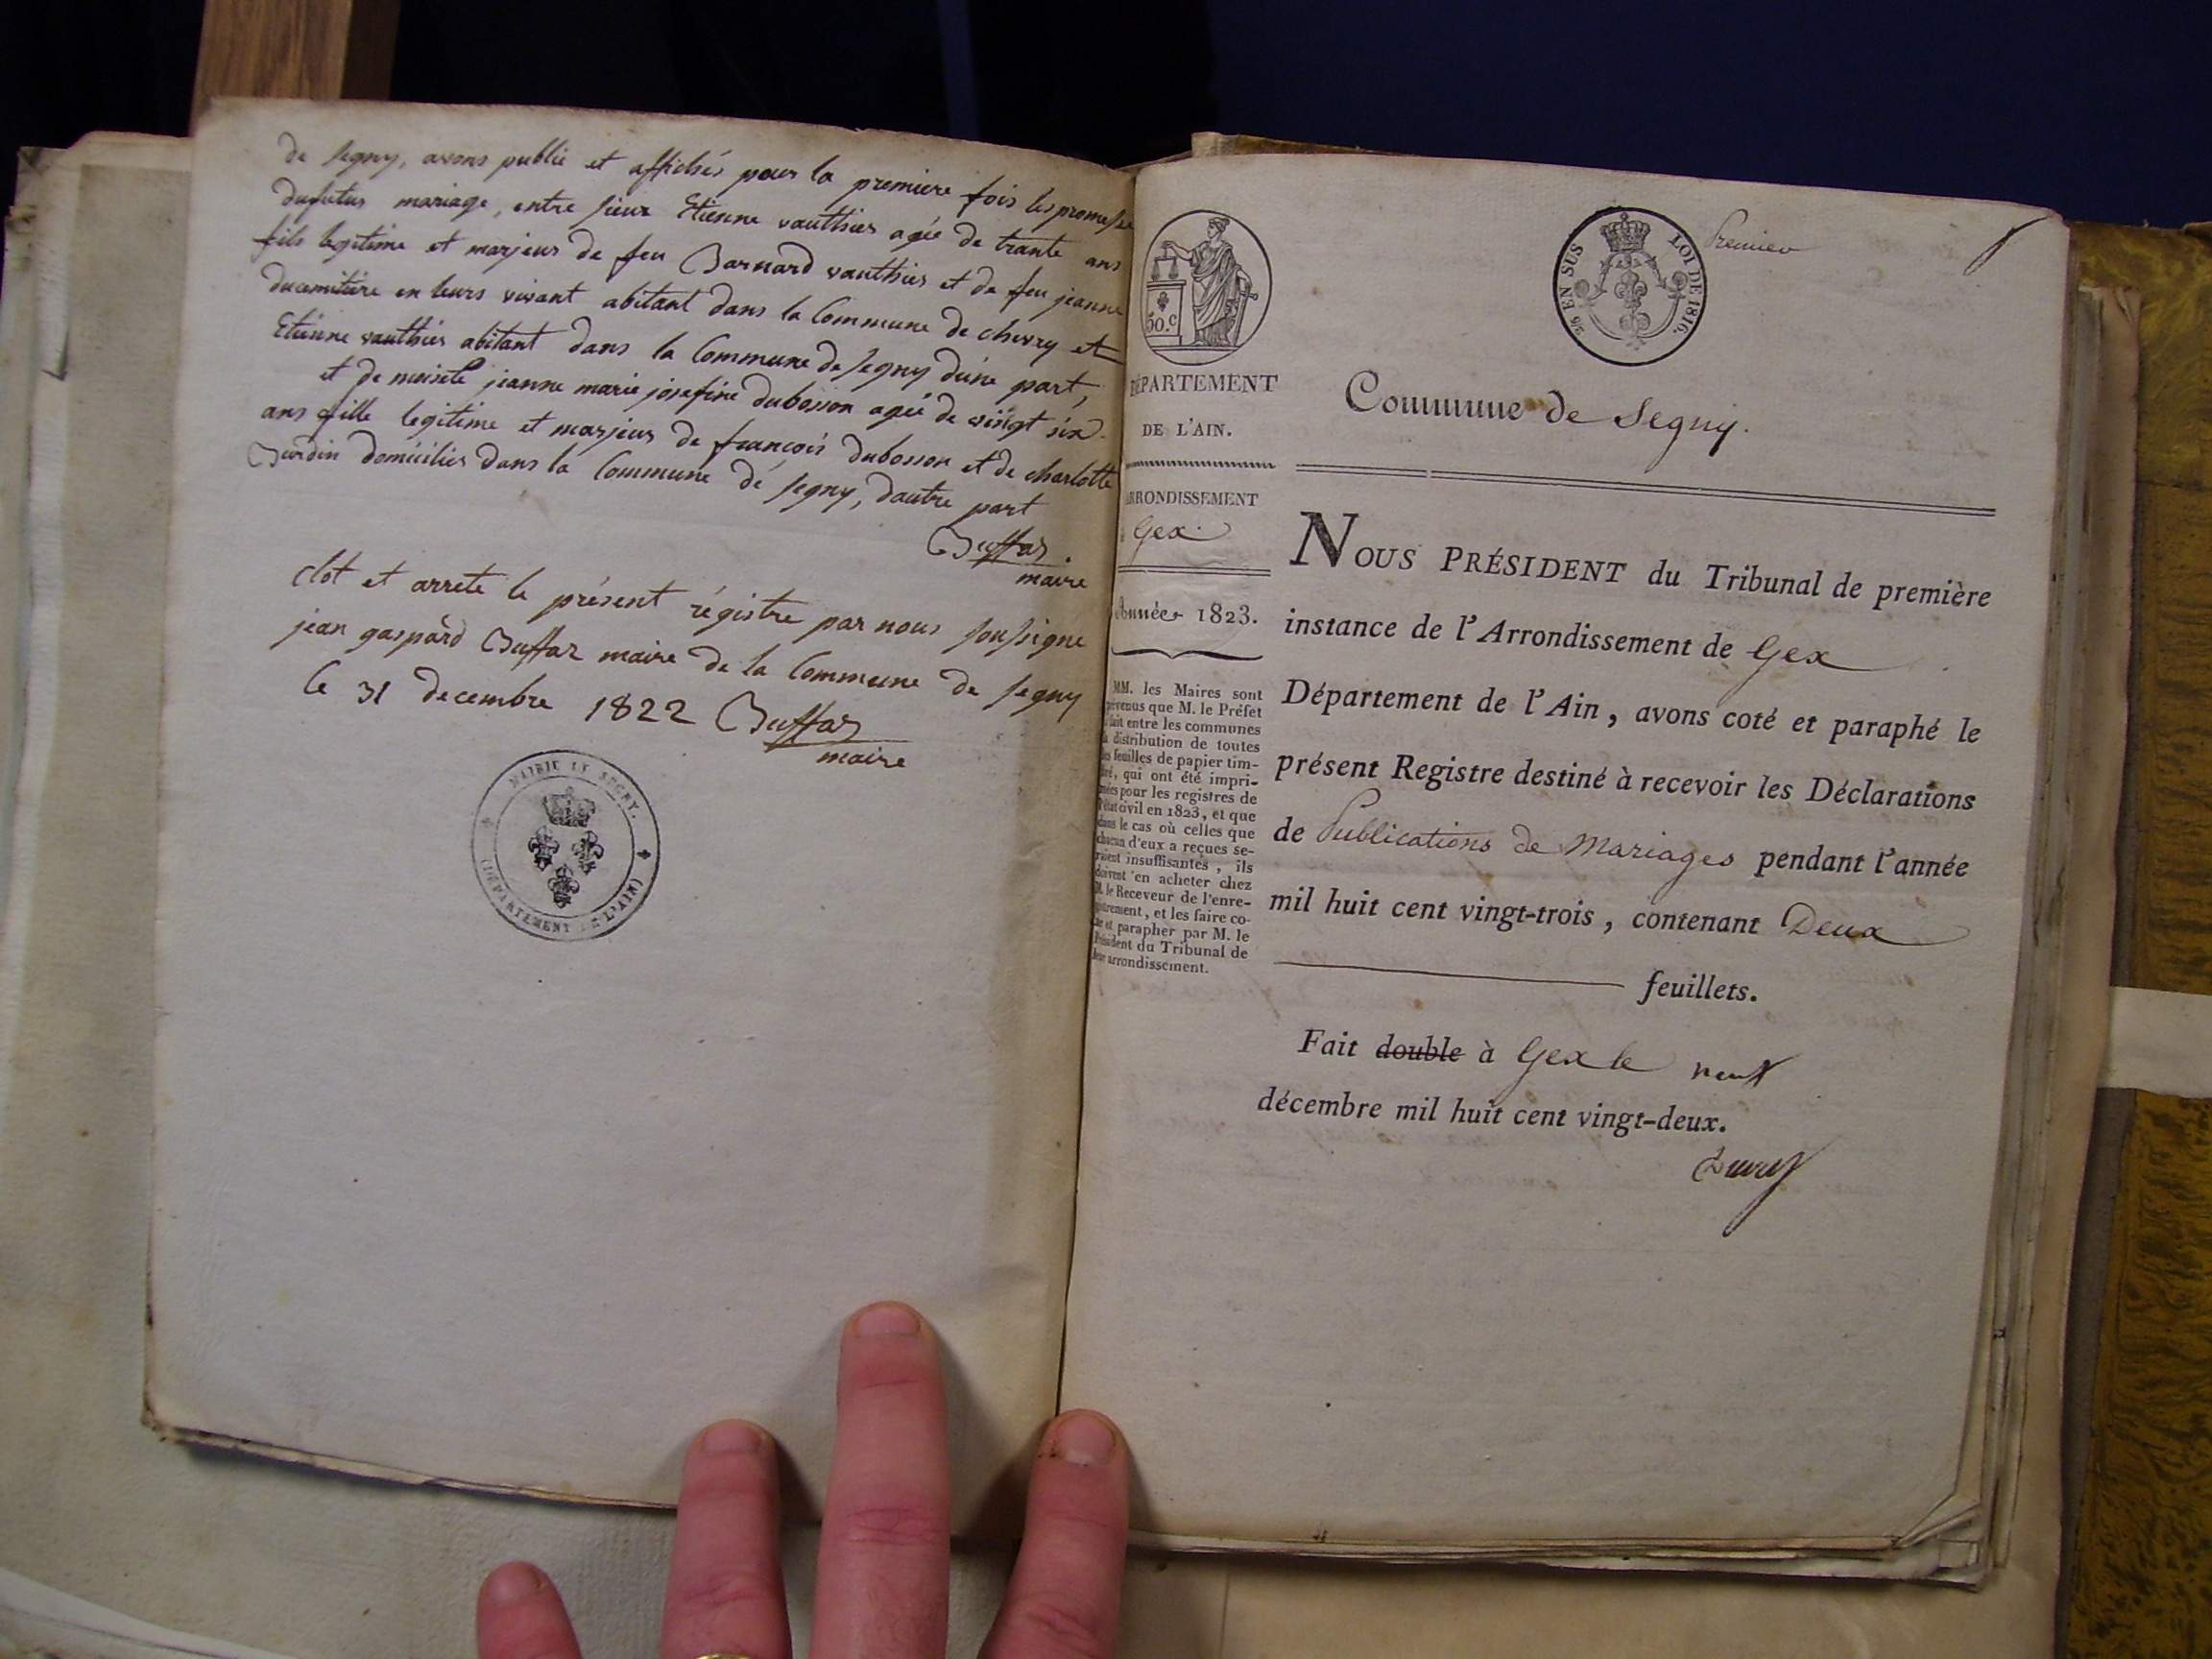 de segny, avons publié et affichés pour la premiere fois les promesse
dufutur mariage, entre sieur Etienne vauthier agée de trante ans
fils legitime et marjeur de feu Barnard vauthier et de feu jeanne
ducemitière en leurs vivant abitant dans la Commune de chevry et
Etienne vauthier abitant dans la Commune de segny d'une part,
et de moiselle jeanne marie josefine dubosson agée de vingt six
ans fille legitime et marjeur de françois dubosson et de charlotte
domicilies dans la Commune de segny, dautre part
Buffaz
maire
clot et arrete le présent régistre par nous soussigné
jean gaspard Buffaz maire de la Commune de segny
le 31 decembre 1822 Buffaz
maire
MAIRIE DE SEGNY.
(DÉPARTEMENT DE L'AIN)
50.c
2/6 EN SUS LOI DE 1816.
Premier
DÉPARTEMENT
DE L'AIN.
ARRONDISSEMENT
Gex
Année 1823.
MM. les Maires sont
prévenus que M. le Préfet
a fait entre les communes
la distribution de toutes
les feuilles de papier tim-
bré, qui ont été impri-
mées pour les registres de
l'état civil en 1823, et que
dans le cas où celles que
chacun d'eux a reçues se-
raient insuffisantes, ils
doivent en acheter chez
M. le Receveur de l'enre-
gistrement, et les faire co-
ter et parapher par M. le
Président du Tribunal de
leur arrondissement.
Commune de Segny.
NOUS PRÉSIDENT du Tribunal de première
instance de l'Arrondissement de Gex
Département de l'Ain, avons coté et paraphé le
présent Registre destiné à recevoir les Déclarations
de Publications de Mariages pendant l'année
mil huit cent vingt-trois, contenant Deux
feuillets.
Fait double à Gex le neuf
décembre mil huit cent vingt-deux.